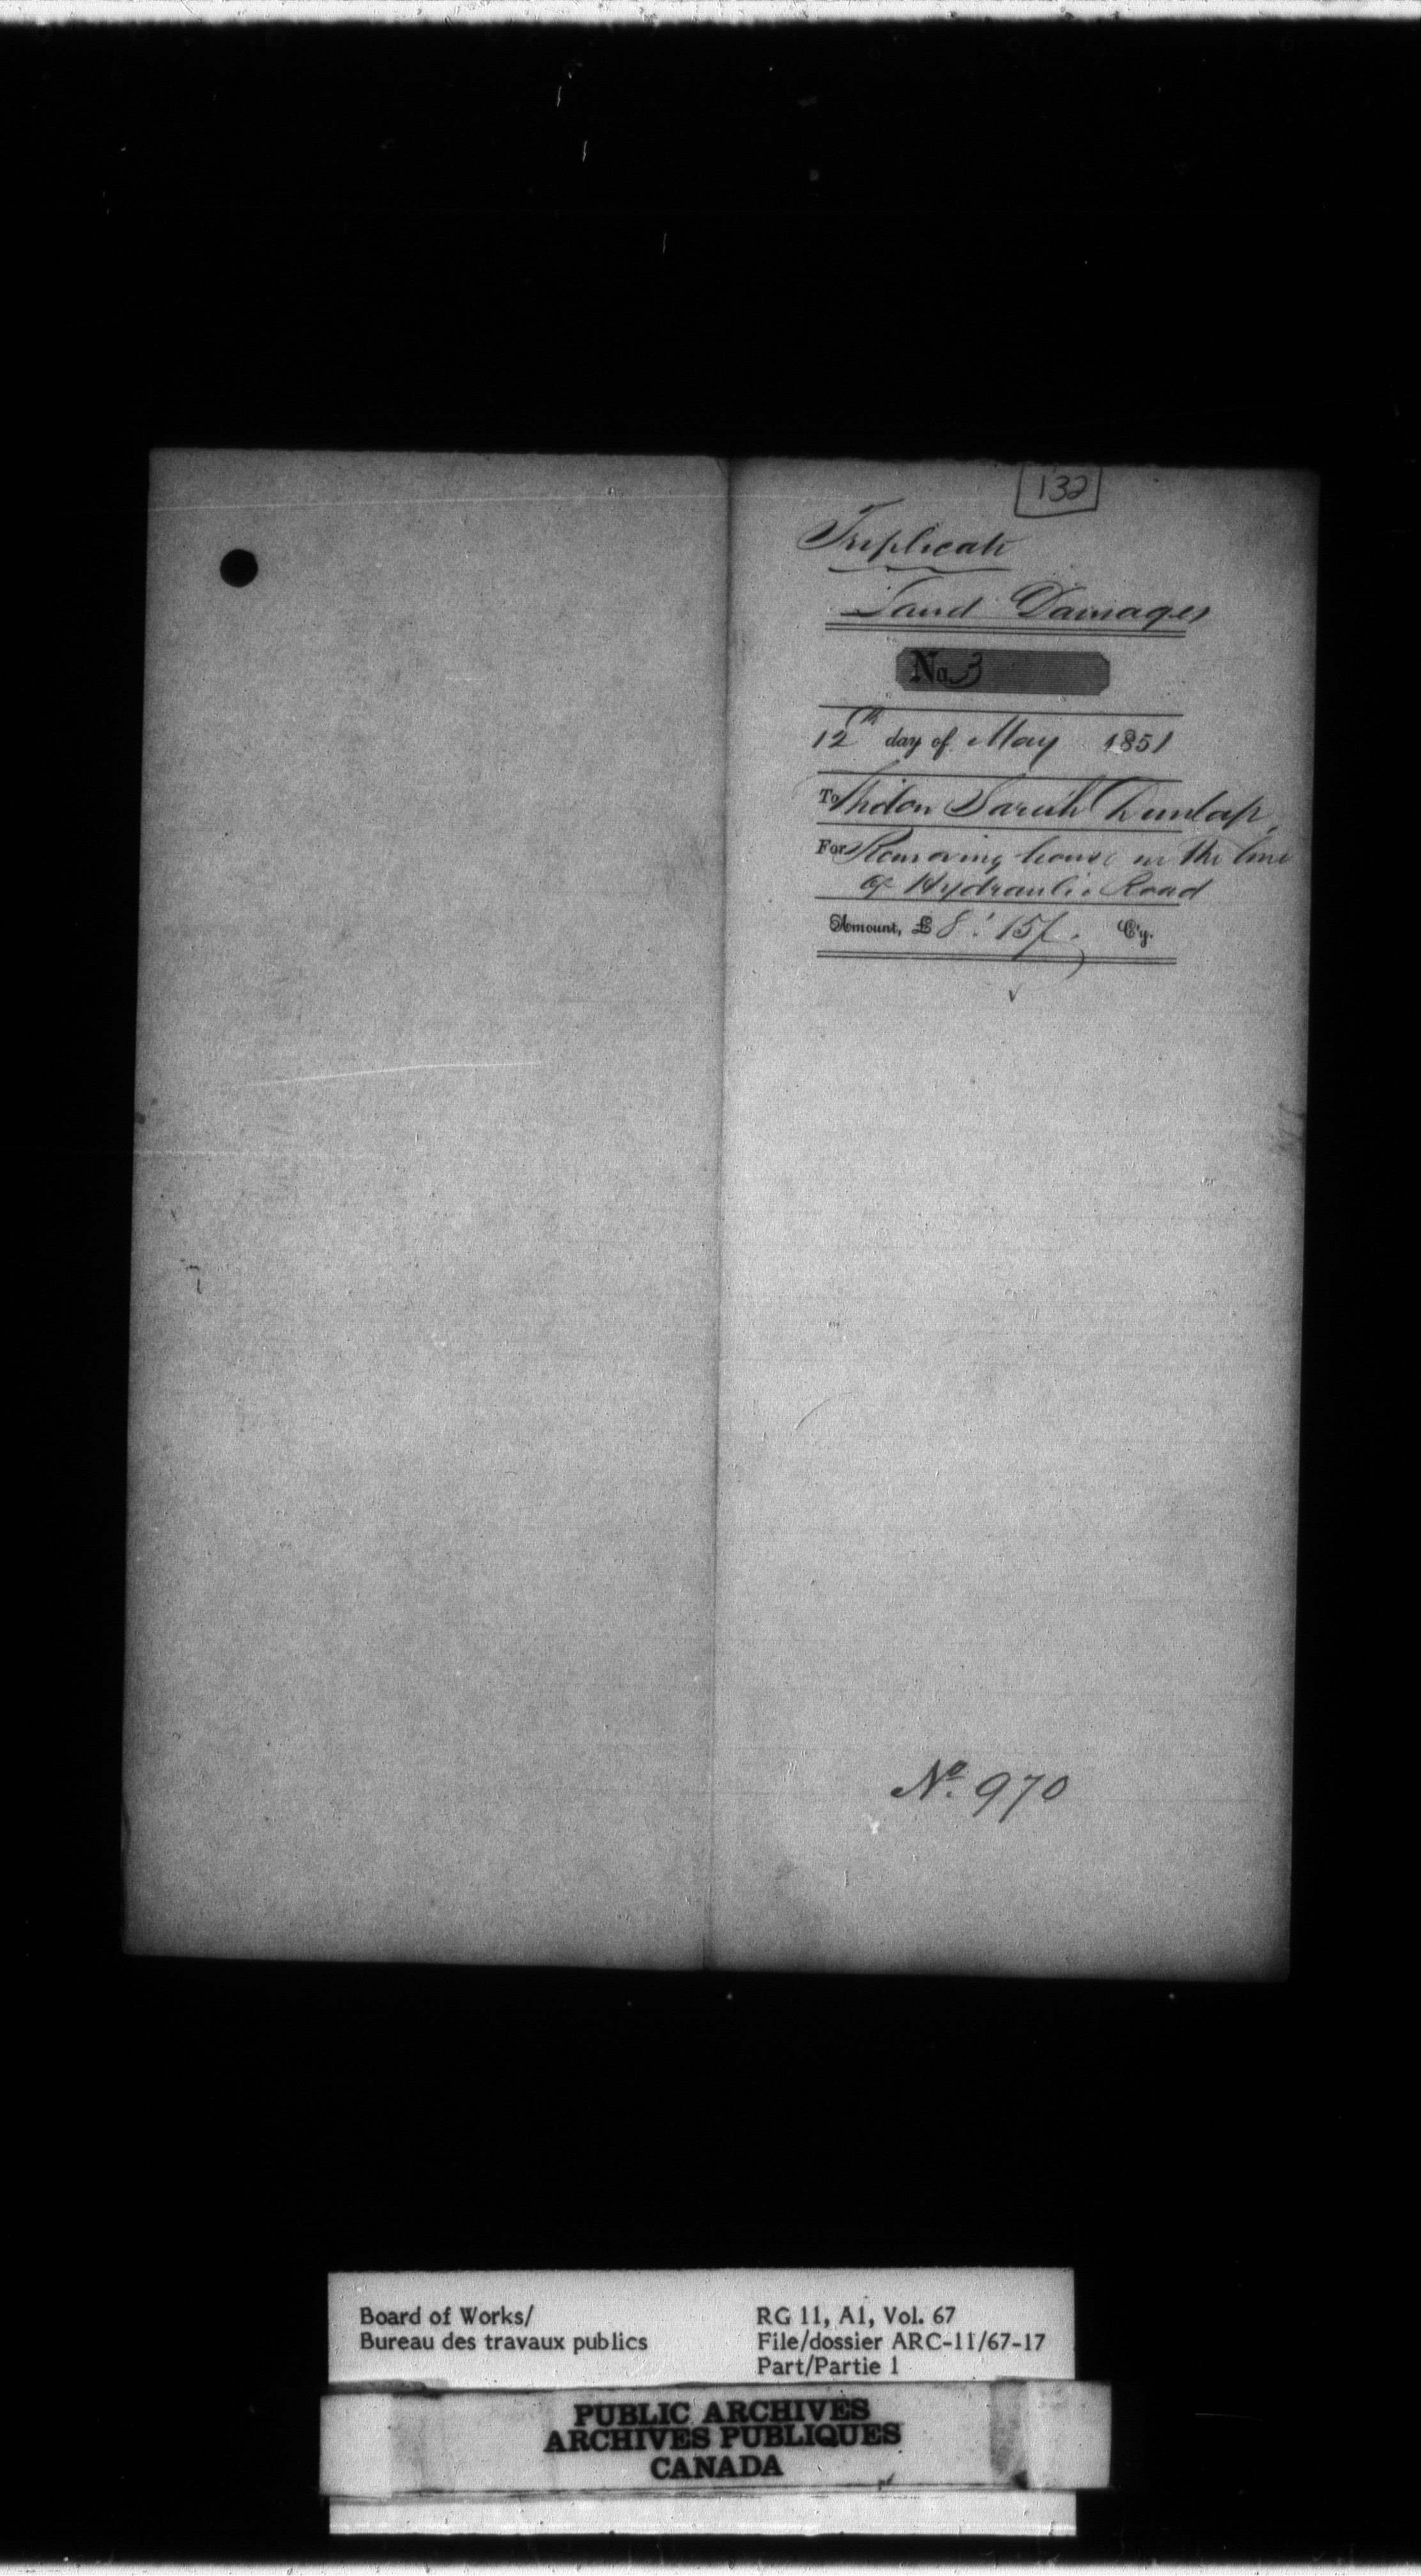 132
Triplicate
Land Damages
No. 3
12th day of May 1851
To Widow Sarah Dunlap,
For Removing house in the line
of Hydraulic Road
Amount, £ 8 : 15/. Cy.
No. 970
Board of Works/
Bureau des travaux publics
RG 11, A1, Vol. 67
File/dossier ARC-11/67-17
Part/Partie 1
PUBLIC ARCHIVES
ARCHIVES PUBLIQUES
CANADA